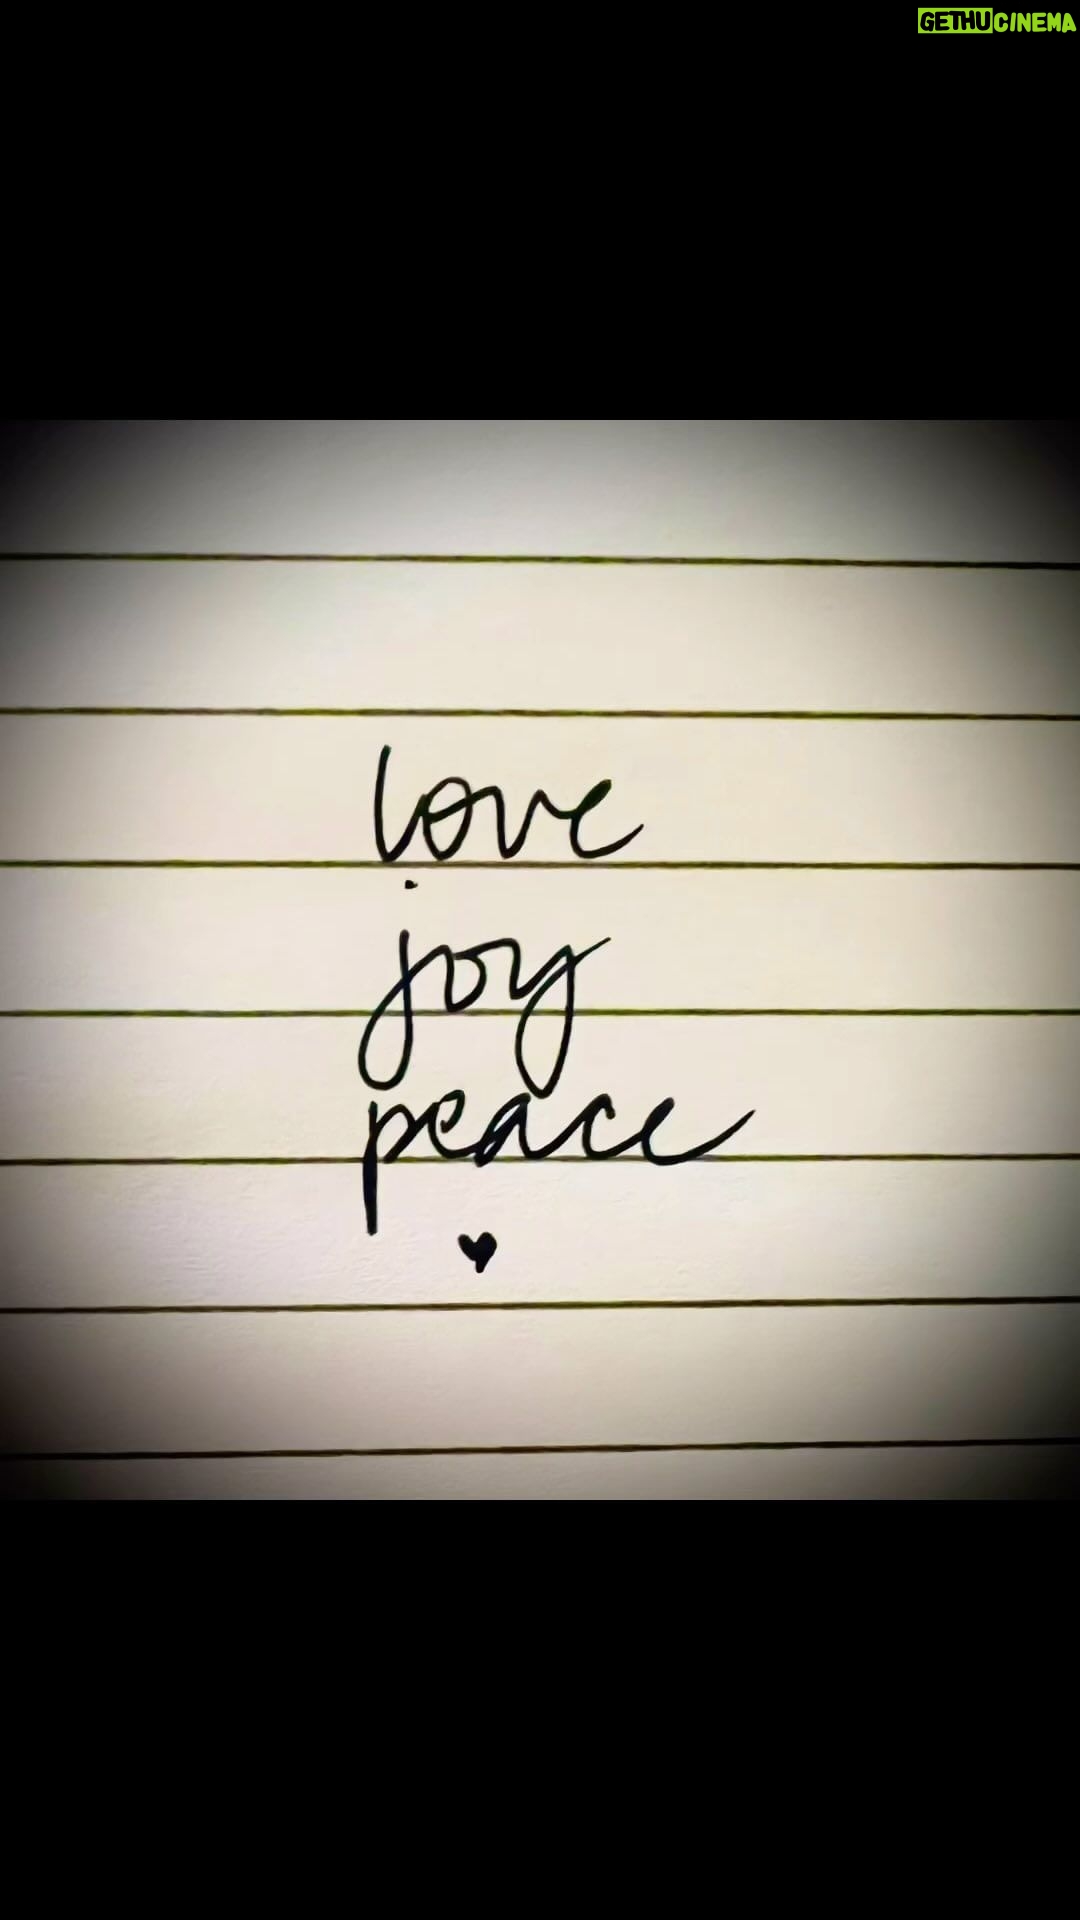 GETHUCINEMA
love
joy
peace